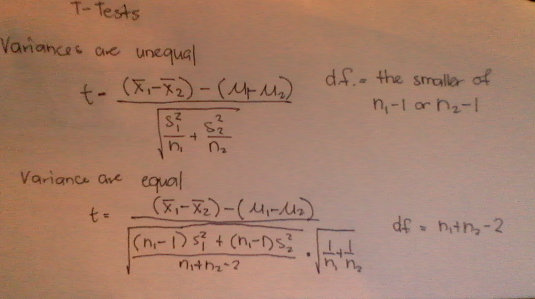 T-Tests
Variances are unequal
t = (x̄₁-x̄₂) - (μ₁-μ₂) / √(s₁²/n₁ + s₂²/n₂)
d.f. = the smaller of
n₁-1 or n₂-1
Variance are equal
t = (x̄₁-x̄₂)-(μ₁-μ₂) / √((n₁-1)s₁² + (n₁-1)s₂² / n₁+n₂-2) · √(1/n₁+1/n₂)
df = n₁+n₂-2